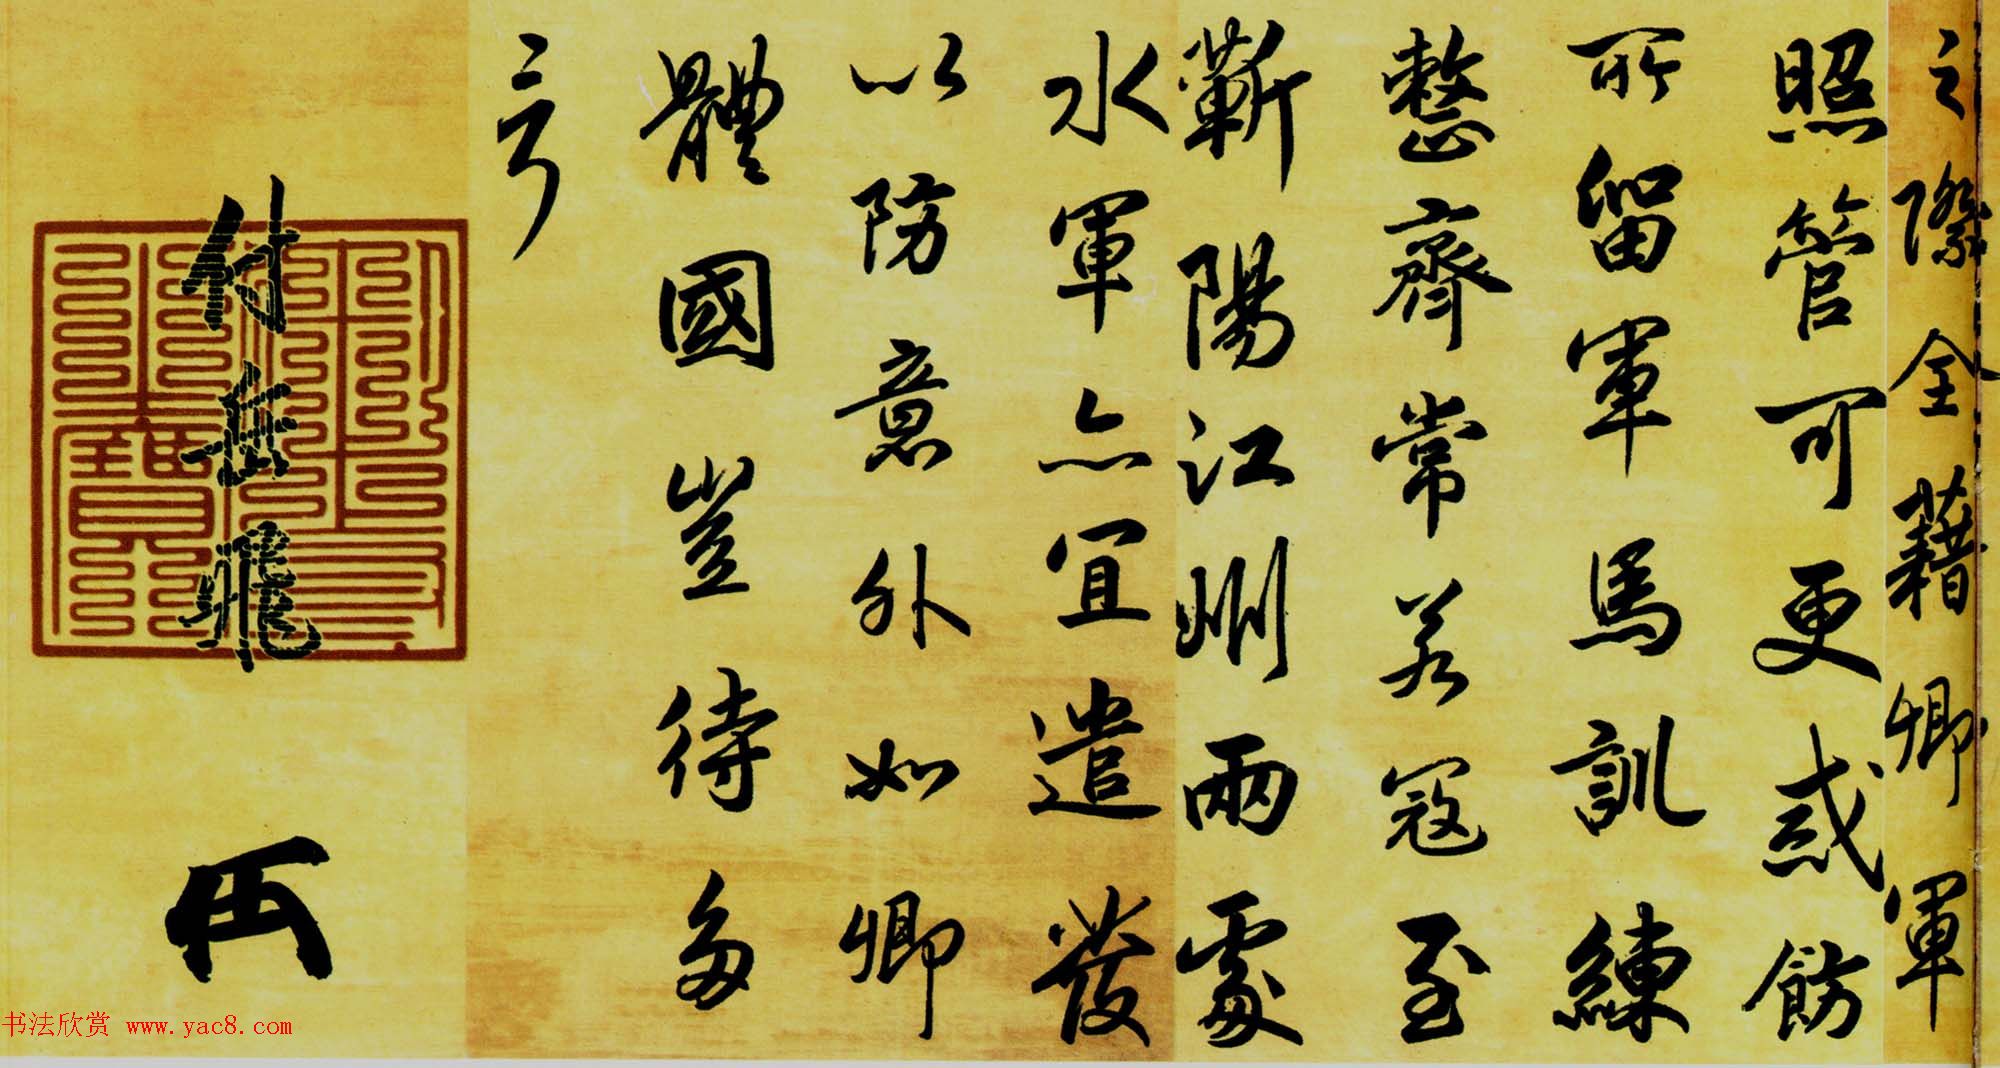 之際全藉卿軍
照管可更戒飭
所留軍馬訓練
整齊常若寇至
蘄陽江州兩處
水軍亦宜遣發
以防意外如卿
體國豈待多
言
付岳飛
书法欣赏 www.yac8.com